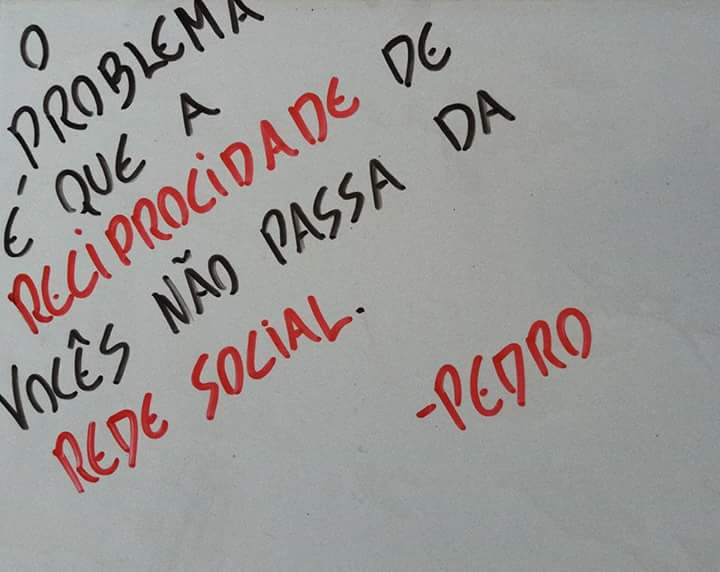 O
PROBLEMA
É QUE A
RECiPROCiDADE DE
VOCÊS NÃO PASSA DA
REDE SOCiAL.
-PEDRO